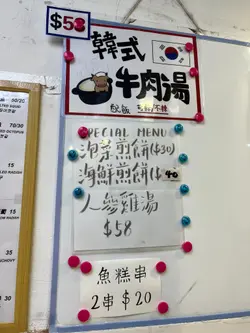 $53
韓式
牛肉湯
配飯
SPECIAL MENU
泡菜煎餅($30)
海鮮煎餅($40
人參雞湯
$58
魚糕串
2串$20
50/20
15
35
15